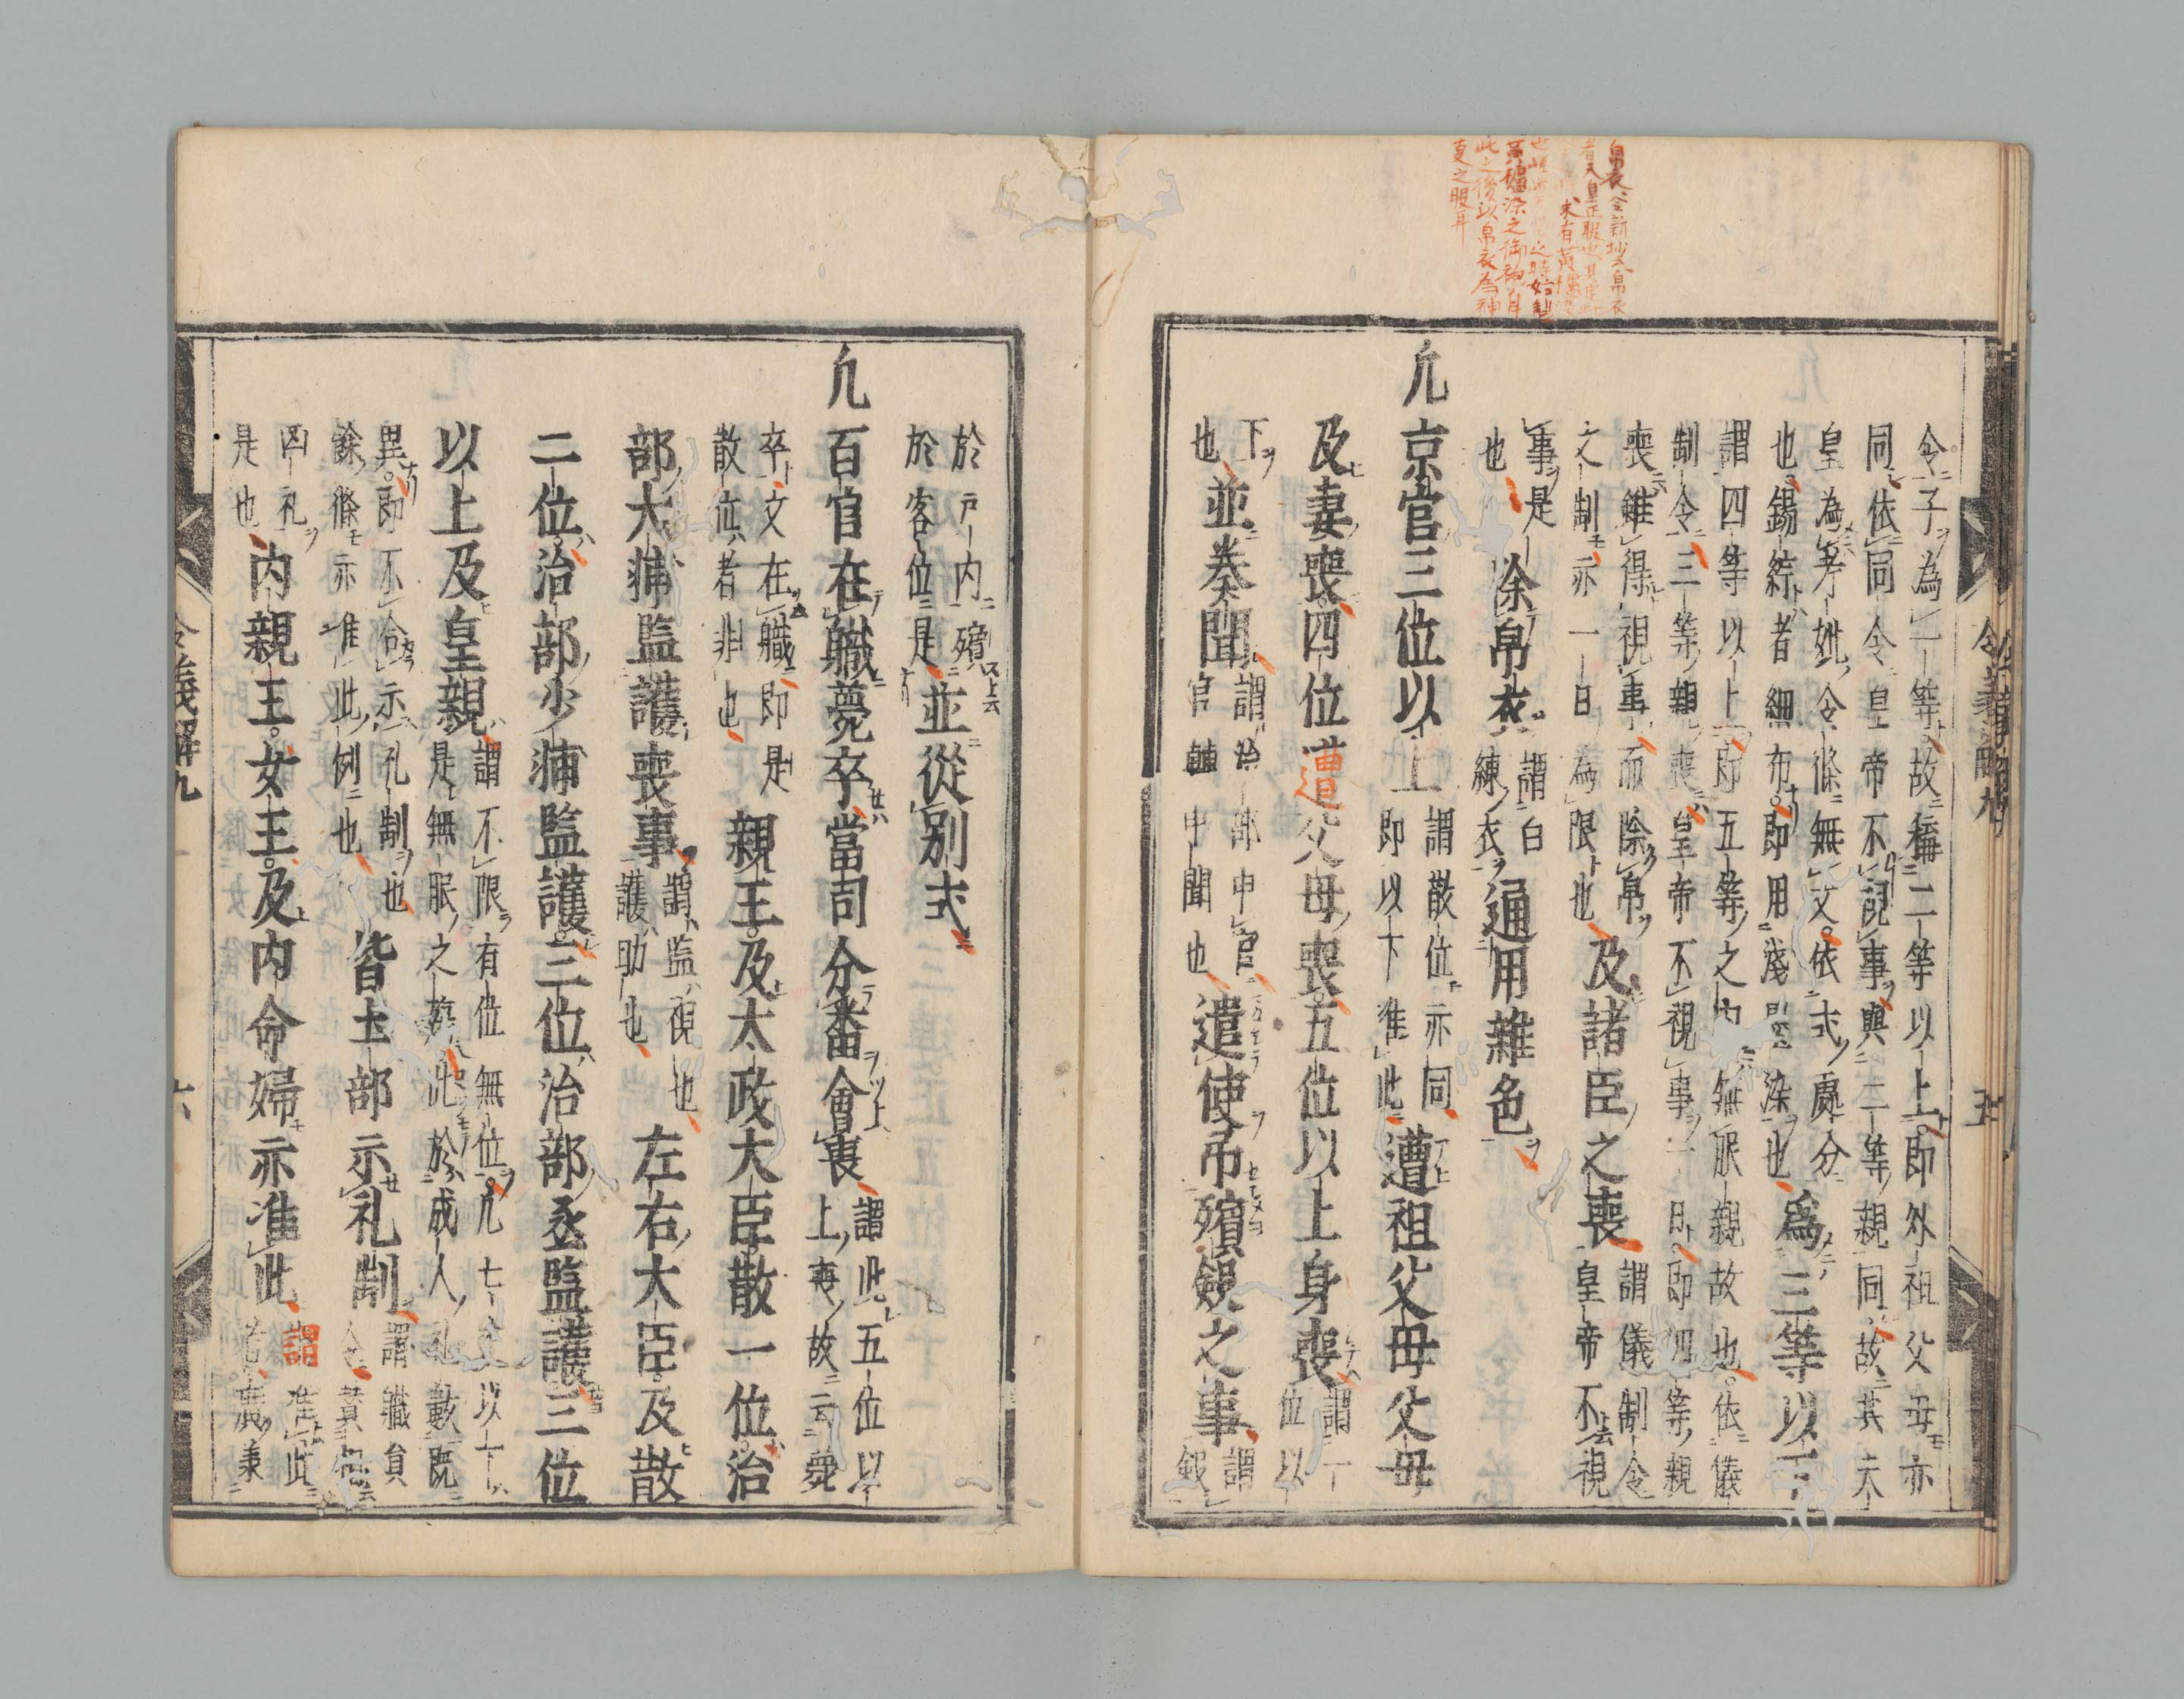 帛衣令新抄云帛衣
者天皇正服也
未有黄櫨染
之時始製
黄櫨染之御袍自
此之後以帛衣為神
夏之服耳
令義解九
五
令子為一等故稱二等以上即外祖父母亦
同依同令皇帝不視事與二等親同故其太
皇為考妣令條無文依式處分
為三等以下
也錫紵者細布即用淺墨染也
謂四等以上即五等之内無服親故也依儀
制令三等親喪皇帝不視事一日即四等親
喪雖得視事而除帛
及諸臣之喪
謂儀制令
文制亦一日為限也
皇帝不視
事是也
除帛衣
謂白
練衣
通用雜色
凢京官三位以上
謂散位亦同
即以下准此
遭祖父母父母
及妻喪四位遭父母喪五位以上身喪
謂
位以
下
也
並奏聞
謂治部申官
官輔申聞也
遣使吊殯斂之事
謂
斂
於戸内殯
於客位是
並從別式
凢百官在職薨卒當司分番會喪
謂此五位以
上喪故云薨
卒文在職即是
散位者非也
親王及太政大臣散一位治
部大輔監護喪事
謂監視也
護助也
左右大臣及散
二位治部少輔監護三位治部丞監護三位
以上及皇親
謂不限有位無位凢七以下
是無服之殤此於成人礼數既
異即不合示礼制也
餘條亦准此例也
皆土部示礼制
謂職員
令
四礼
是也
内親王女王及内命婦亦准此
謂准此
若庶兼
令義解九
六